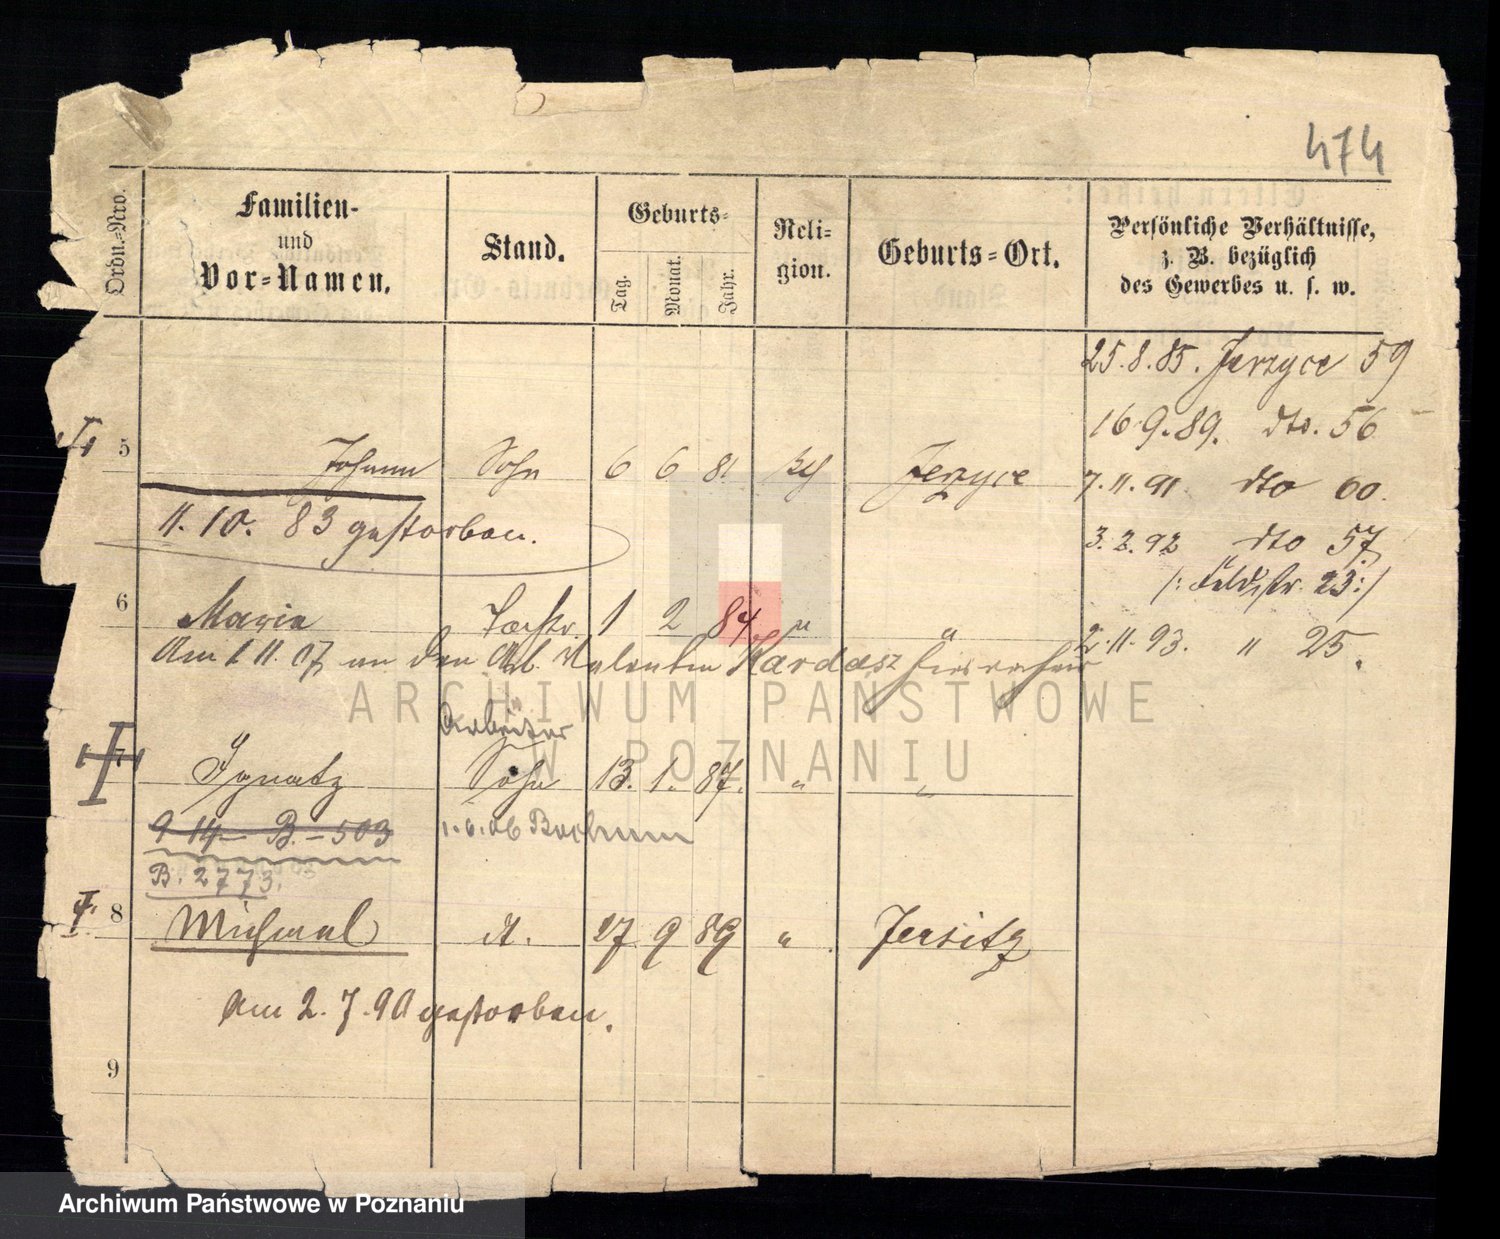 474
Ordn.-Nro.
Familien- und Vor-Namen.
Stand.
Geburts-
Tag. Monat. Jahr.
Reli-gion.
Geburts-Ort.
Persönliche Verhältnisse, z. B. bezüglich des Gewerbes u. s. w.
25.8.85. Jerzyce 59
16.9.89. dto. 56
5 Johann Sohn 6 6 81 Jerzyce
7.11.91. dto 60.
11. 10. 83 gestorben.
3.2.92 dto 57
/: Feldstr. 23:/
6 Maria Tochtr. 1 2 84 " "
2.11.93. " 25.
Am 1 11. 07 an den Arb. Valentin Kardasz hier verh
Arbeiter
7 Ignatz Sohn 13. 1. 87. " "
9 14 B. – 503
1.6.06 Bochum
B. 2773.
8 Michael dt. 27 9 89 " Jersitz
Am 2. 7. 90 gestorben.
9
ARCHIWUM PAŃSTWOWE
W POZNANIU
Archiwum Państwowe w Poznaniu